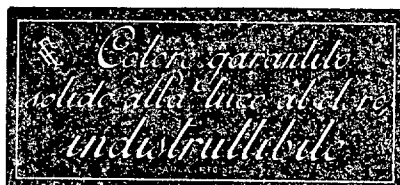 Colore garantito
solido alla luce
indistruttibile